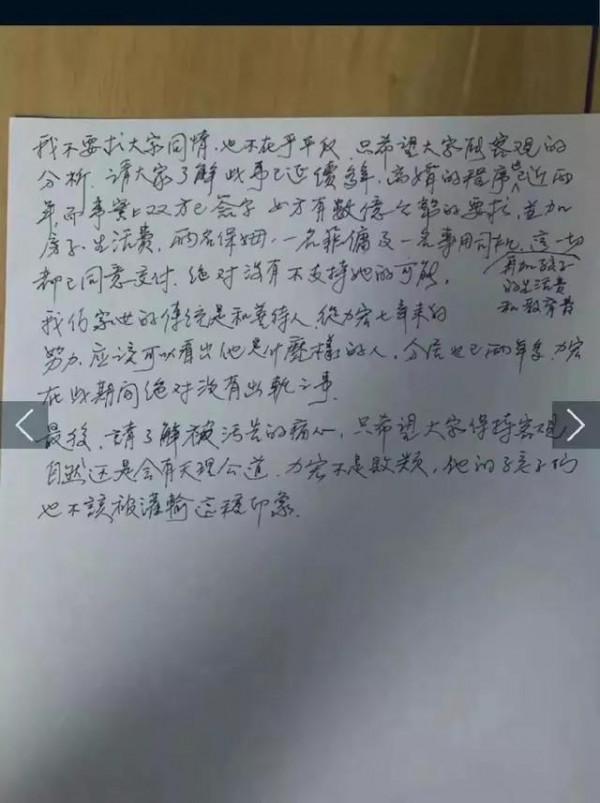 我不要求大家同情,也不在乎平反,只希望大家能客观的
分析,请大家了解此事已延續多年,离婚的程序也已近两
年,而事實上双方已签字,女方有數億金額的要求,並加
房子,生活费,两名保姆,一名菲傭及一名專用司机,這一切
再加孩子
的生活费
和教育費
都已同意交付,绝对没有不支持她的可能.
我们家世的传统是和善待人,從力宏七年来的
努力,应该可以看出他是什麼樣的人,分居也已两年多,力宏
在此期间绝对没有出軌之事.
最後,請了解被污蔑的痛心,只希望大家保持客观,
自然还是会有天理公道,力宏不是败类,他的孩子们
也不該被灌輸這種印象.